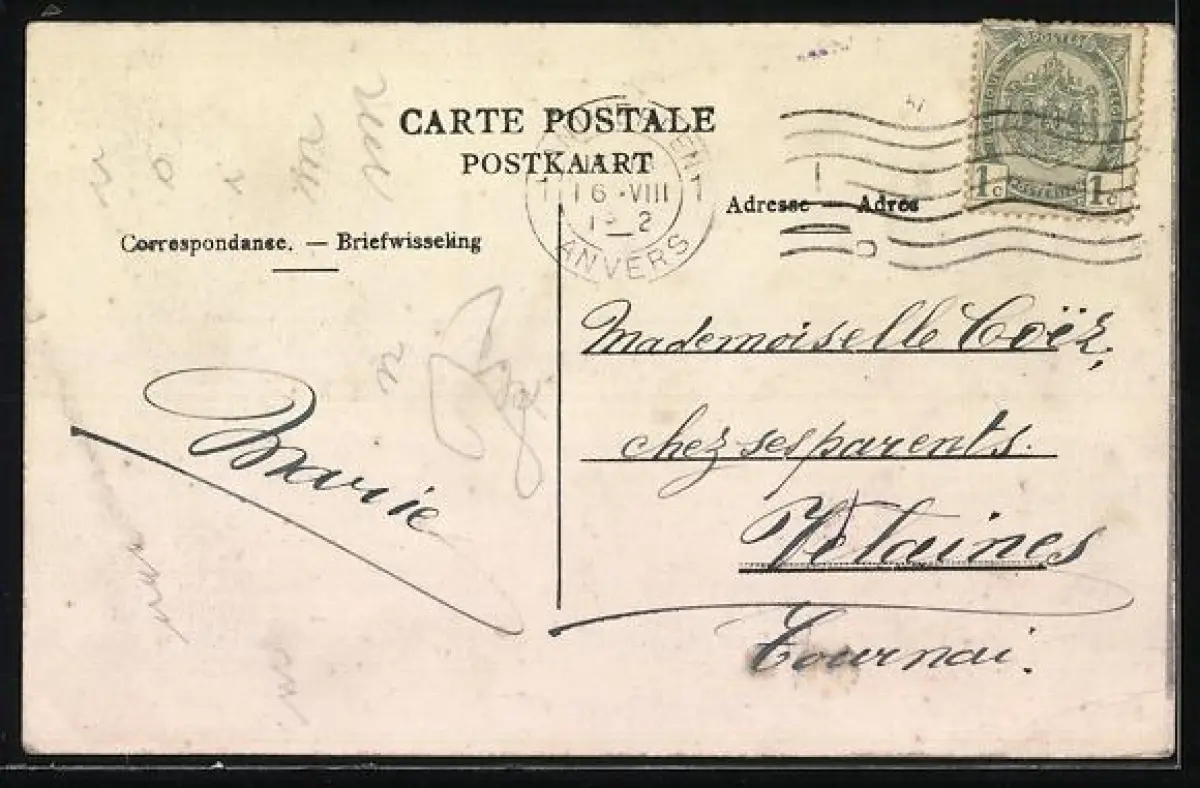 CARTE POSTALE
POSTKAART
16 VIII
ANVERS
1c 1c
Adresse — Adres
Correspondanse. — Briefwisseling
Mademoiselle Coëz,
chez ses parents.
Velaines
Tournai.
Marie